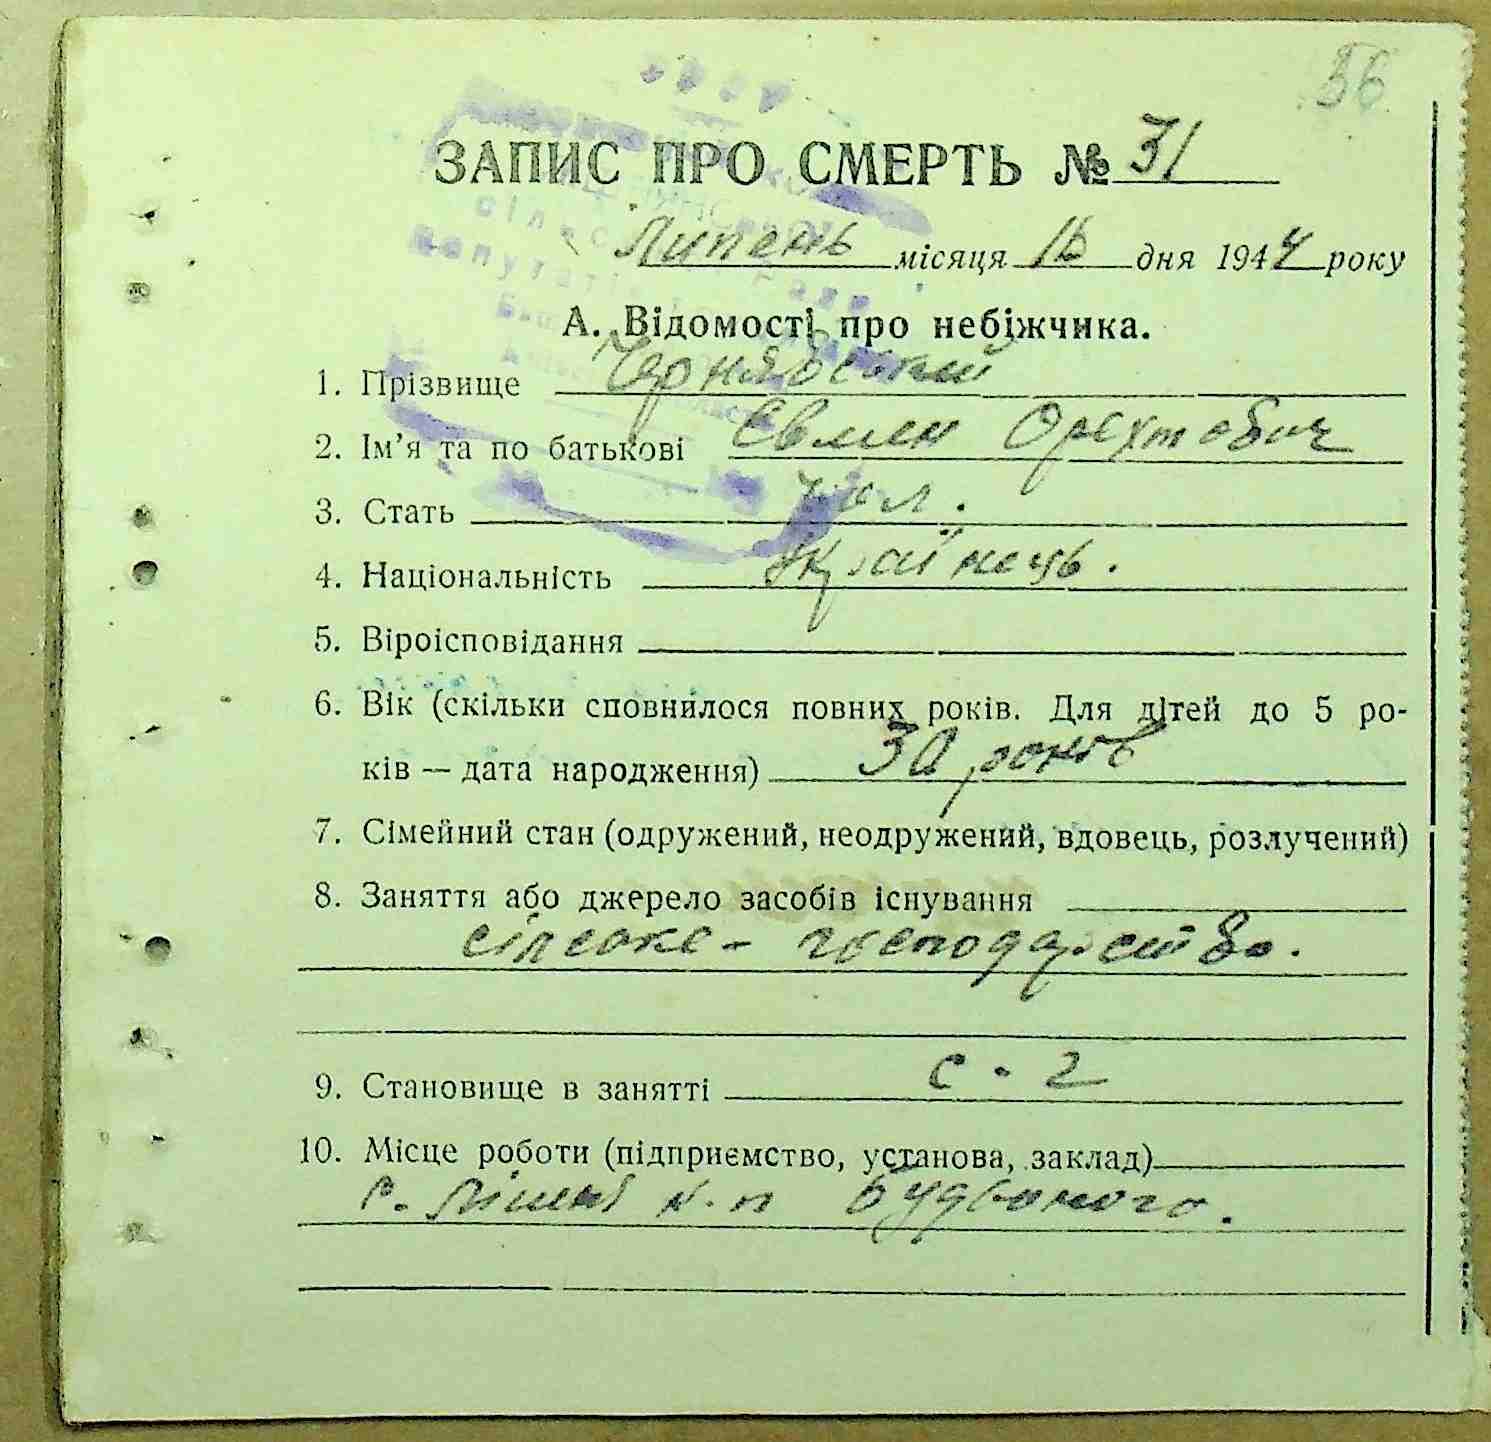 56
ЗАПИС ПРО СМЕРТЬ № 31
Липень місяця 16 дня 1944 року
А. Відомості про небіжчика.
1. Прізвище Чернявський
2. Ім'я та по батькові Євмен Орехтович
3. Стать чол.
4. Національність Українець.
5. Віроісповідання
6. Вік (скільки сповнилося повних років. Для дітей до 5 ро-
ків — дата народження) 30 років
7. Сімейний стан (одружений, неодружений, вдовець, розлучений)
8. Заняття або джерело засобів існування
сілске - господарство.
9. Становище в занятті с - г
10. Місце роботи (підприємство, установа, заклад)
с. к-п Будьоного.